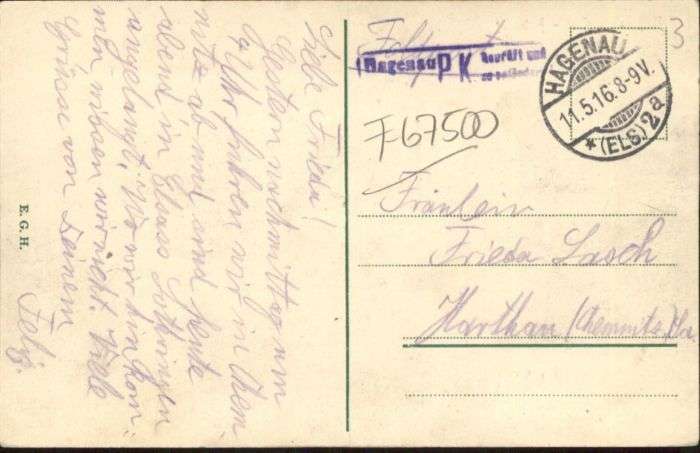 Liebe Frieda!
Gestern nachmittag um
Uhr fuhren wir in Chem-
nitz ab und sind heute
abend in Elsass Lothringen
angelangt. Wo wir hinkom-
men wissen wir nicht. Viele
Grüsse von Deinem
Felix.
E. G. H.
Feldpost
Hagenau P K Geprüft und
zu befördern
HAGENAU
11.5.16.8-9V.
* (ELS.) 2a
3
F67500
Fräulein
Frieda Lasch
Harthau /Chemnitz i/Sa.